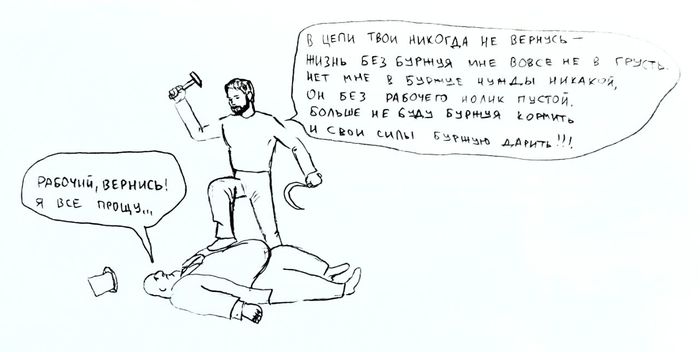 РАБОЧИЙ, ВЕРНИСЬ!
Я ВСЕ ПРОЩУ...
В ЦЕПИ ТВОИ НИКОГДА НЕ ВЕРНУСЬ –
ЖИЗНЬ БЕЗ БУРЖУЯ МНЕ ВОВСЕ НЕ В ГРУСТЬ.
НЕТ МНЕ В БУРЖУЕ НУЖДЫ НИКАКОЙ,
ОН БЕЗ РАБОЧЕГО НОЛИК ПУСТОЙ.
БОЛЬШЕ НЕ БУДУ БУРЖУЯ КОРМИТЬ
И СВОИ СИЛЫ БУРЖУЮ ДАРИТЬ!!!